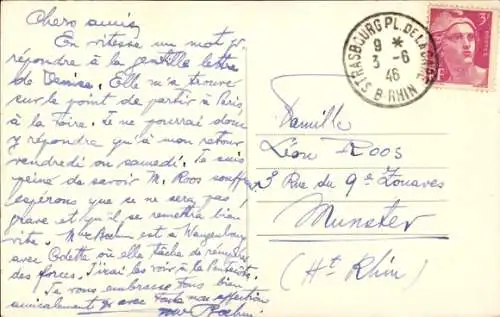 Chers amis,
En vitesse un mot pr.
répondre à la gentille lettre
de Denise. Elle m'a trouvé
sur le point de partir à Paris,
à la Foire. Je ne pourrai donc
y répondre qu'à mon retour
vendredi ou samedi. Je suis
peinée de savoir M. Roos souffrant
espérons que ce ne sera pas
grave et qu'il se remettra bien
vite. Mme Boehm est à Wangenbourg
avec Odette où elle tâche de
des forces. J'irai les voir à la Pentecôte.
Je vous embrasse tous bien
amicalement et avec toute mon affection
Boehm
STRASBOURG PL. DE LA GARE
9 *
3 - 6
46
B-RHIN
3F
Famille
Léon Roos
3 Rue du 9e Zouaves
Munster
(Ht Rhin)